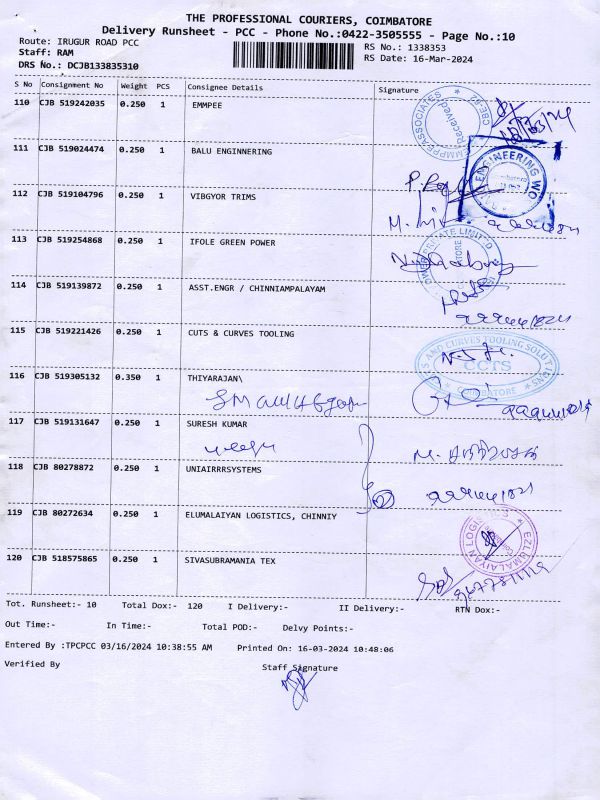 THE PROFESSIONAL COURIERS, COIMBATORE
Delivery Runsheet - PCC - Phone No.:0422-3505555 - Page No.:10
Route: IRUGUR ROAD PCC RS No.: 1338353
Staff: RAM RS Date: 16-Mar-2024
DRS No.: DCJB133835310
S No Consignment No Weight PCS Consignee Details Signature
110 CJB 519242035 0.250 1 EMMPEE
111 CJB 519024474 0.250 1 BALU ENGINNERING
112 CJB 519104796 0.250 1 VIBGYOR TRIMS
113 CJB 519254868 0.250 1 IFOLE GREEN POWER
114 CJB 519139872 0.250 1 ASST.ENGR / CHINNIAMPALAYAM
115 CJB 519221426 0.250 1 CUTS & CURVES TOOLING
CCTS
COIMBATORE
116 CJB 519305132 0.350 1 THIYARAJAN\
117 CJB 519131647 0.250 1 SURESH KUMAR
118 CJB 80278872 0.250 1 UNIAIRRRSYSTEMS
119 CJB 80272634 0.250 1 ELUMALAIYAN LOGISTICS, CHINNIY
120 CJB 518575865 0.250 1 SIVASUBRAMANIA TEX
Tot. Runsheet:- 10 Total Dox:- 120 I Delivery:- II Delivery:- RTN Dox:-
Out Time:- In Time:- Total POD:- Delvy Points:-
Entered By :TPCPCC 03/16/2024 10:38:55 AM Printed On: 16-03-2024 10:48:06
Verified By Staff Signature